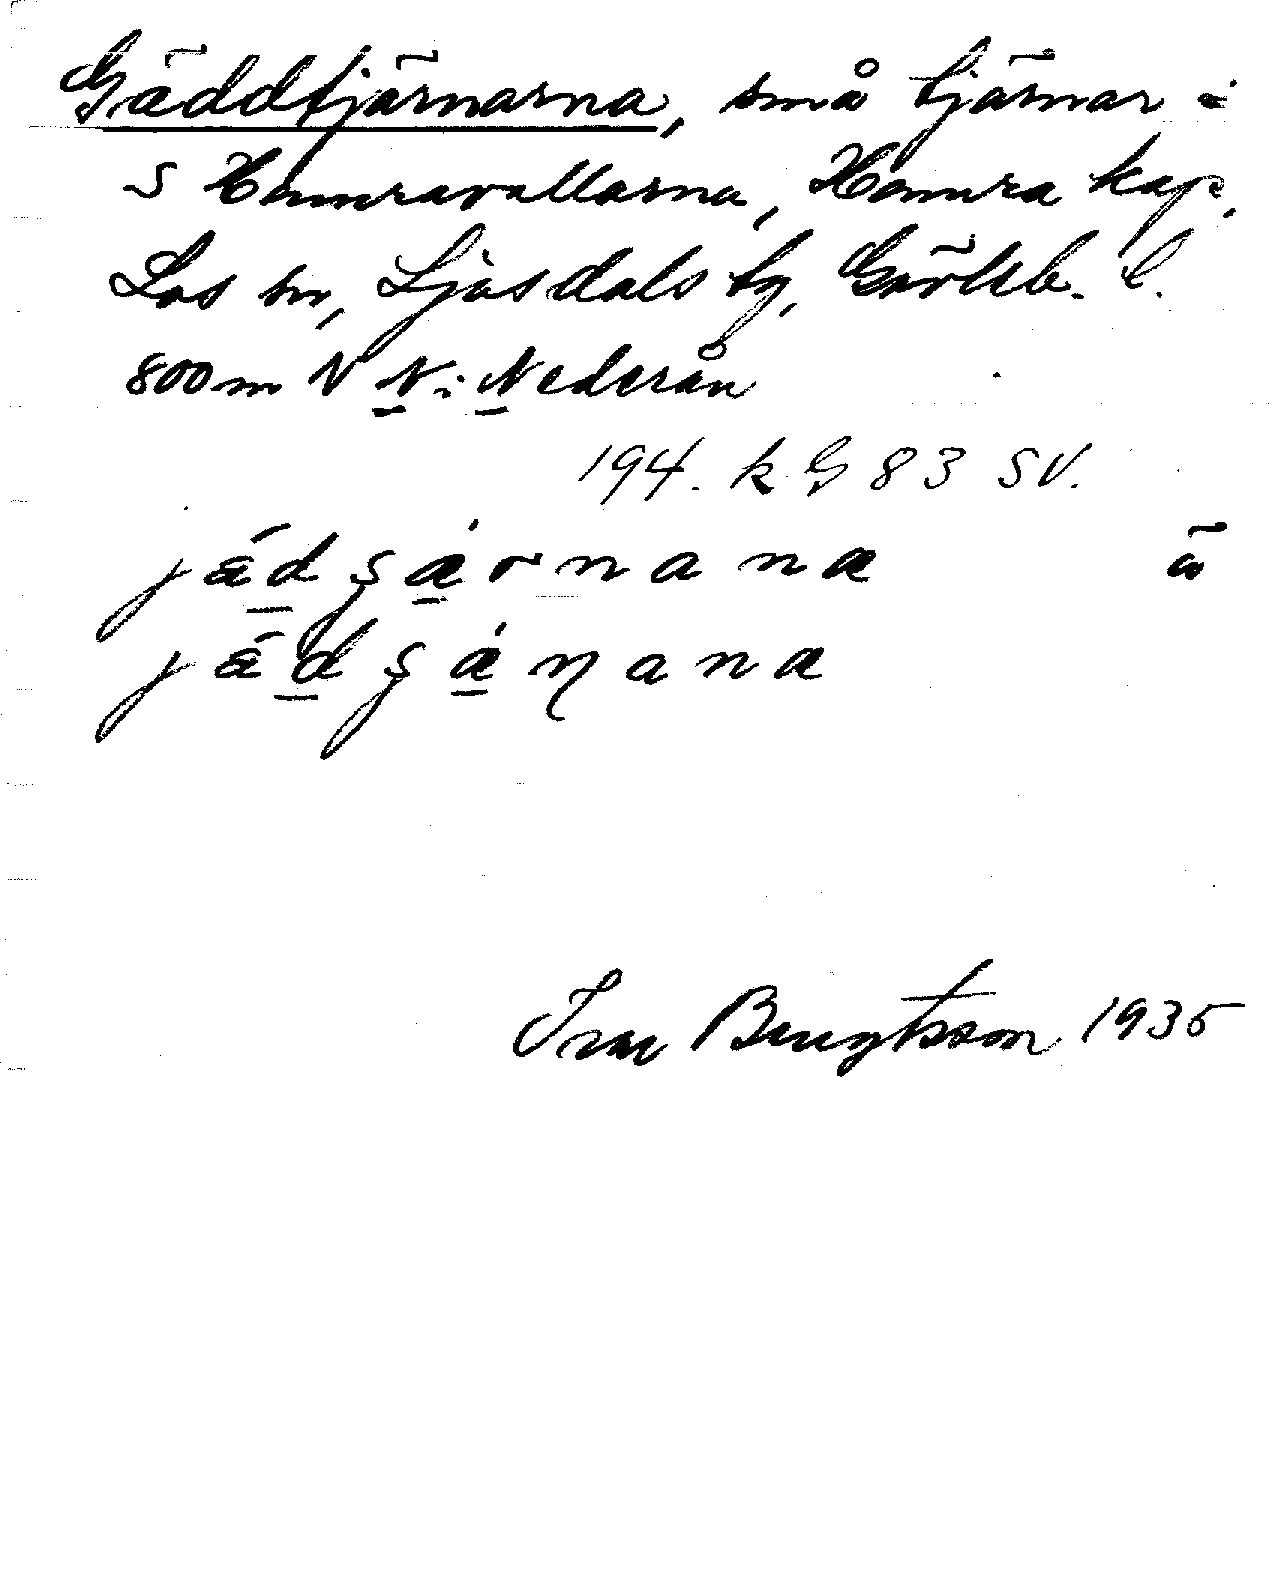 Gäddtjärnarna, små tjärnar i
S Hamravallarna, Hamra kap.
Los sn, Ljusdals tg, Gävleb. l.
800 m N N i Nederån
194. k G 83 SV.
jád ʂárnana ä
jád ʂáɳana
Bengtsson 1935